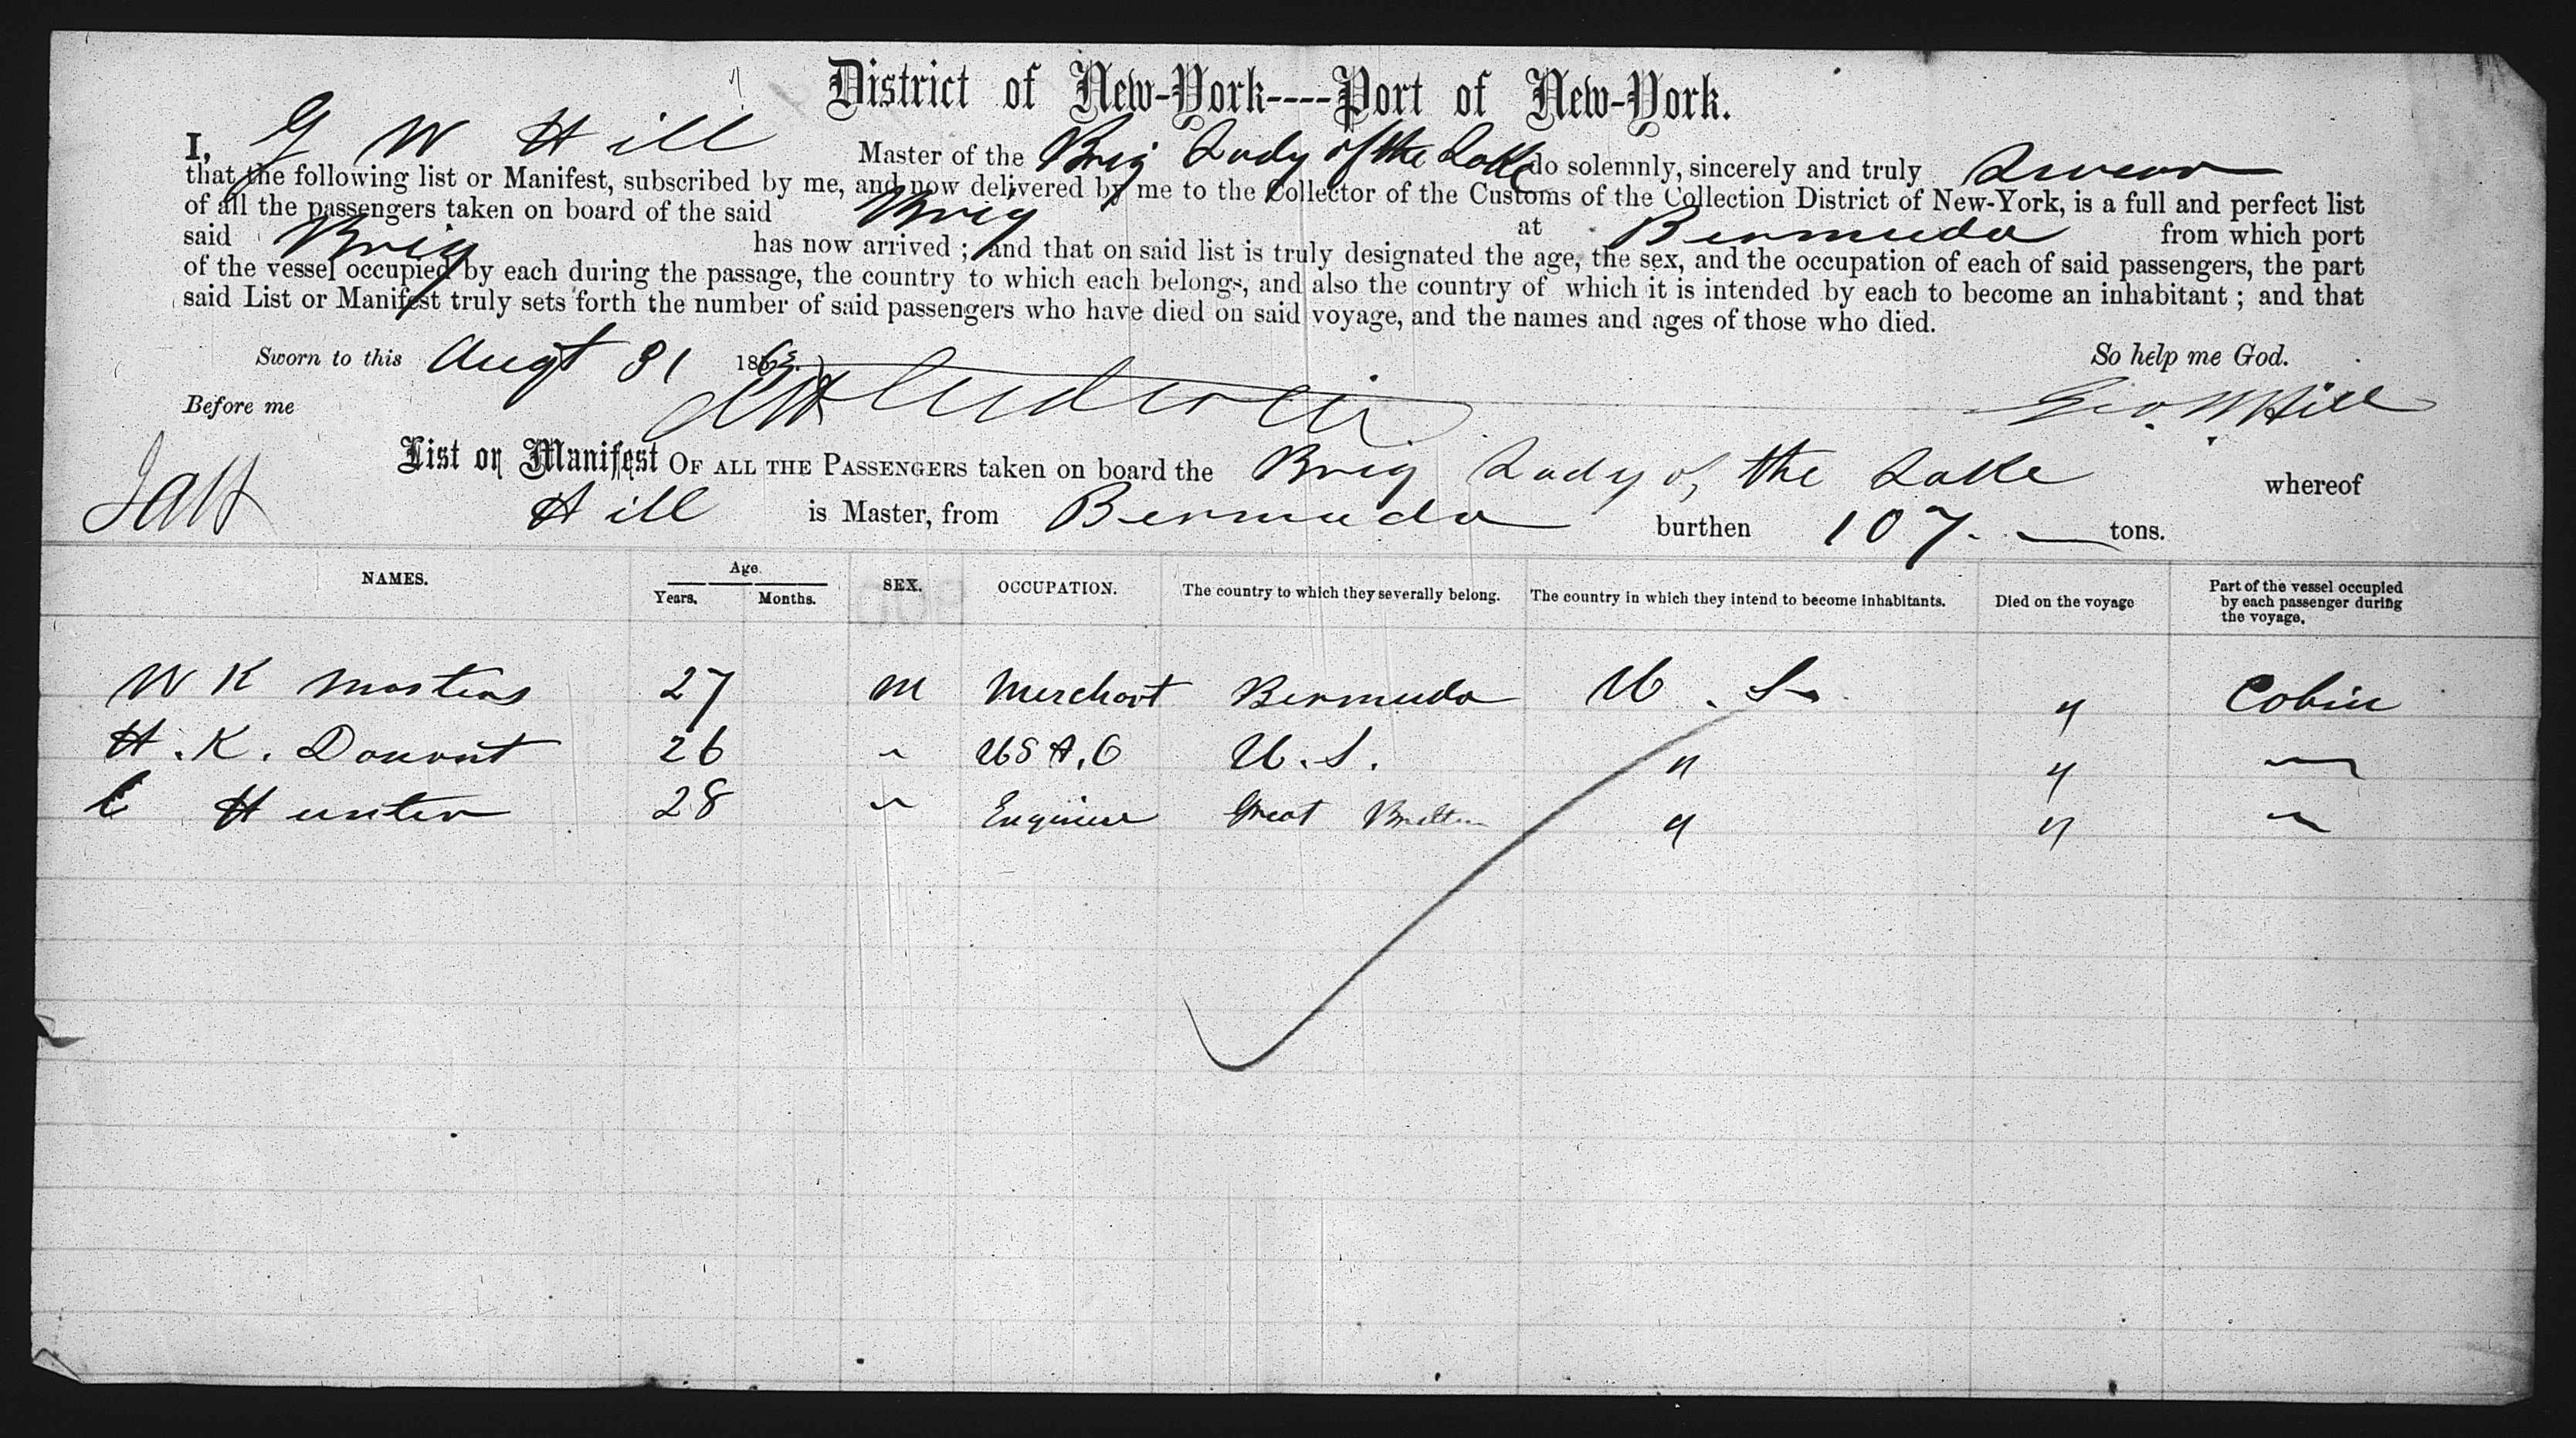 District of New-York----Port of New-York.
I, G W Hill Master of the Brig Lady of the Lake do solemnly, sincerely and truly Swear
that the following list or Manifest, subscribed by me, and now delivered by me to the Collector of the Customs of the Collection District of New-York, is a full and perfect list
of all the passengers taken on board of the said Brig at Bermuda from which port
said Brig has now arrived; and that on said list is truly designated the age, the sex, and the occupation of each of said passengers, the part
of the vessel occupied by each during the passage, the country to which each belongs, and also the country of which it is intended by each to become an inhabitant; and that
said List or Manifest truly sets forth the number of said passengers who have died on said voyage, and the names and ages of those who died.
Sworn to this Augt 31 1863. So help me God.
Before me Geo. W Hill
List or Manifest OF ALL THE PASSENGERS taken on board the Brig Lady of the Lake whereof
Hill is Master, from Bermuda burthen 107 tons.
NAMES. Age. SEX. OCCUPATION. The country to which they severally belong. The country in which they intend to become inhabitants. Died on the voyage Part of the vessel occupied by each passenger during the voyage.
Years. Months.
W K Masters 27 M Merchant Bermuda U. S. " Cabin
H. K. 26 " U S A. C U. S. " " "
C Hunter 28 " Engineer Great Britain " " "